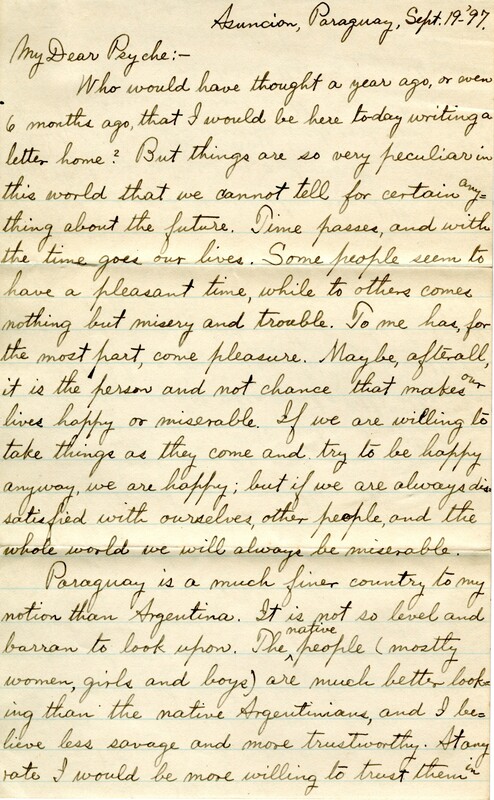 Asuncion, Paraguay, Sept. 19-'97.
My Dear Psyche:-
Who would have thought a year ago, or even
6 months ago, that I would be here today writing a
letter home? But things are so very peculiar in
this world that we cannot tell for certain any=
thing about the future. Time passes, and with
the time goes our lives. Some people seem to
have a pleasant time, while to others comes
nothing but misery and trouble. To me has, for
the most part, come pleasure. Maybe, afterall,
it is the person and not chance that makes our
lives happy or miserable. If we are willing to
take things as they come and try to be happy
anyway, we are happy; but if we are always dis-
satisfied with ourselves, other people, and the
whole world we will always be miserable.
Paraguay is a much finer country to my
notion than Argentina. It is not so level and
barran to look upon. The native people (mostly
women, girls and boys) are much better look-
ing than the native Argentinians, and I be-
lieve less savage and more trustworthy. At any
rate I would be more willing to trust them in